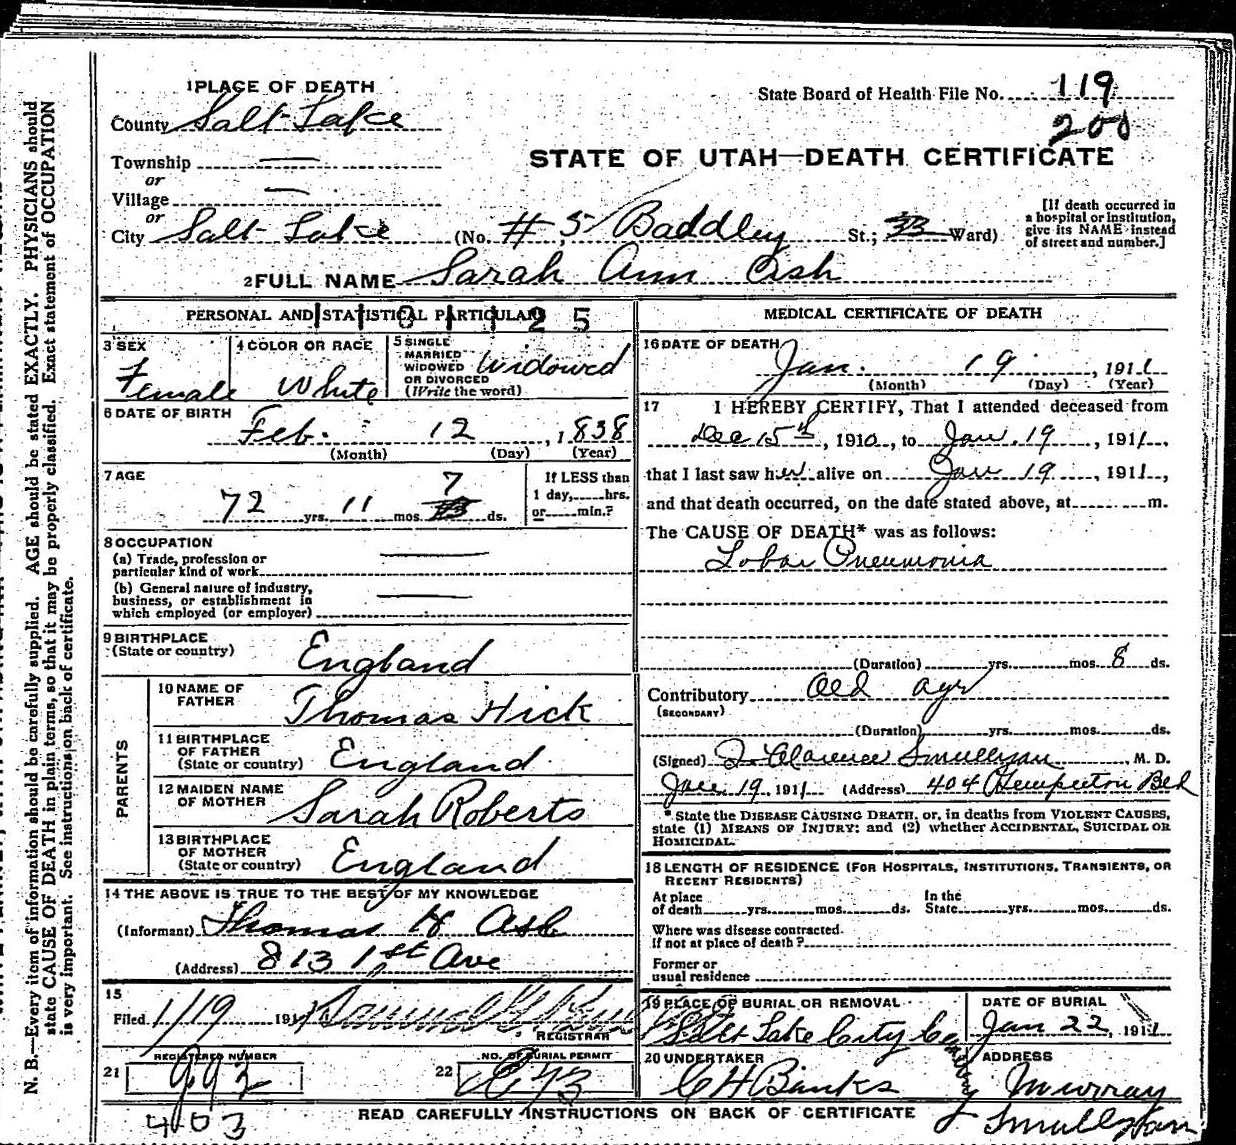 1 PLACE OF DEATH
State Board of Health File No. 119
200
County Salt Lake
STATE OF UTAH—DEATH CERTIFICATE
Township —
or
Village —
or
City Salt Lake (No. # 5 Baddley St.; Ward)
[If death occurred in
a hospital or institution,
give its NAME instead
of street and number.]
2 FULL NAME Sarah Ann Ash
PERSONAL AND STATISTICAL PARTICULARS
3 SEX
Female
4 COLOR OR RACE
White
5 SINGLE
MARRIED
WIDOWED
OR DIVORCED
(Write the word)
Widowed
6 DATE OF BIRTH
Feb. 12, 1838
(Month) (Day) (Year)
7 AGE
72 yrs. 11 mos. 7 ds.
If LESS than
1 day, hrs.
or min.?
8 OCCUPATION
(a) Trade, profession or
particular kind of work —
(b) General nature of industry,
business, or establishment in
which employed (or employer) —
9 BIRTHPLACE
(State or country)
England
PARENTS
10 NAME OF
FATHER
Thomas Hick
11 BIRTHPLACE
OF FATHER
(State or country)
England
12 MAIDEN NAME
OF MOTHER
Sarah Roberts
13 BIRTHPLACE
OF MOTHER
(State or country)
England
14 THE ABOVE IS TRUE TO THE BEST OF MY KNOWLEDGE
(Informant) Thomas H Ash
(Address) 813 1st Ave
15
Filed 1/19 191
REGISTRAR
21 REGISTERED NUMBER
992
22 NO. OF BURIAL PERMIT
403
MEDICAL CERTIFICATE OF DEATH
16 DATE OF DEATH
Jan. 19, 1911
(Month) (Day) (Year)
17 I HEREBY CERTIFY, That I attended deceased from
Dec 15th, 1910, to Jan. 19, 1911,
that I last saw her alive on Jan 19, 1911,
and that death occurred, on the date stated above, at m.
The CAUSE OF DEATH* was as follows:
Lobar Pneumonia
(Duration) yrs. mos. 8 ds.
Contributory Old age
(SECONDARY)
(Duration) yrs. mos. ds.
(Signed) Clarence Smullyan, M. D.
Jan 19 1911 (Address) 404
* State the DISEASE CAUSING DEATH, or, in deaths from VIOLENT CAUSES,
state (1) MEANS OF INJURY; and (2) whether ACCIDENTAL, SUICIDAL OR
HOMICIDAL.
18 LENGTH OF RESIDENCE (FOR HOSPITALS, INSTITUTIONS, TRANSIENTS, OR
RECENT RESIDENTS)
At place
of death yrs. mos. ds.
In the
State yrs. mos. ds.
Where was disease contracted
if not at place of death?
Former or
usual residence
19 PLACE OF BURIAL OR REMOVAL
Salt Lake City Cemetery
DATE OF BURIAL
Jan 22, 1911
20 UNDERTAKER
C H Banks
ADDRESS
Murray
READ CAREFULLY INSTRUCTIONS ON BACK OF CERTIFICATE
Smullyan
N. B.—Every item of information should be carefully supplied. AGE should be stated EXACTLY. PHYSICIANS should
state CAUSE OF DEATH in plain terms, so that it may be properly classified. Exact statement of OCCUPATION
is very important. See instructions on back of certificate.